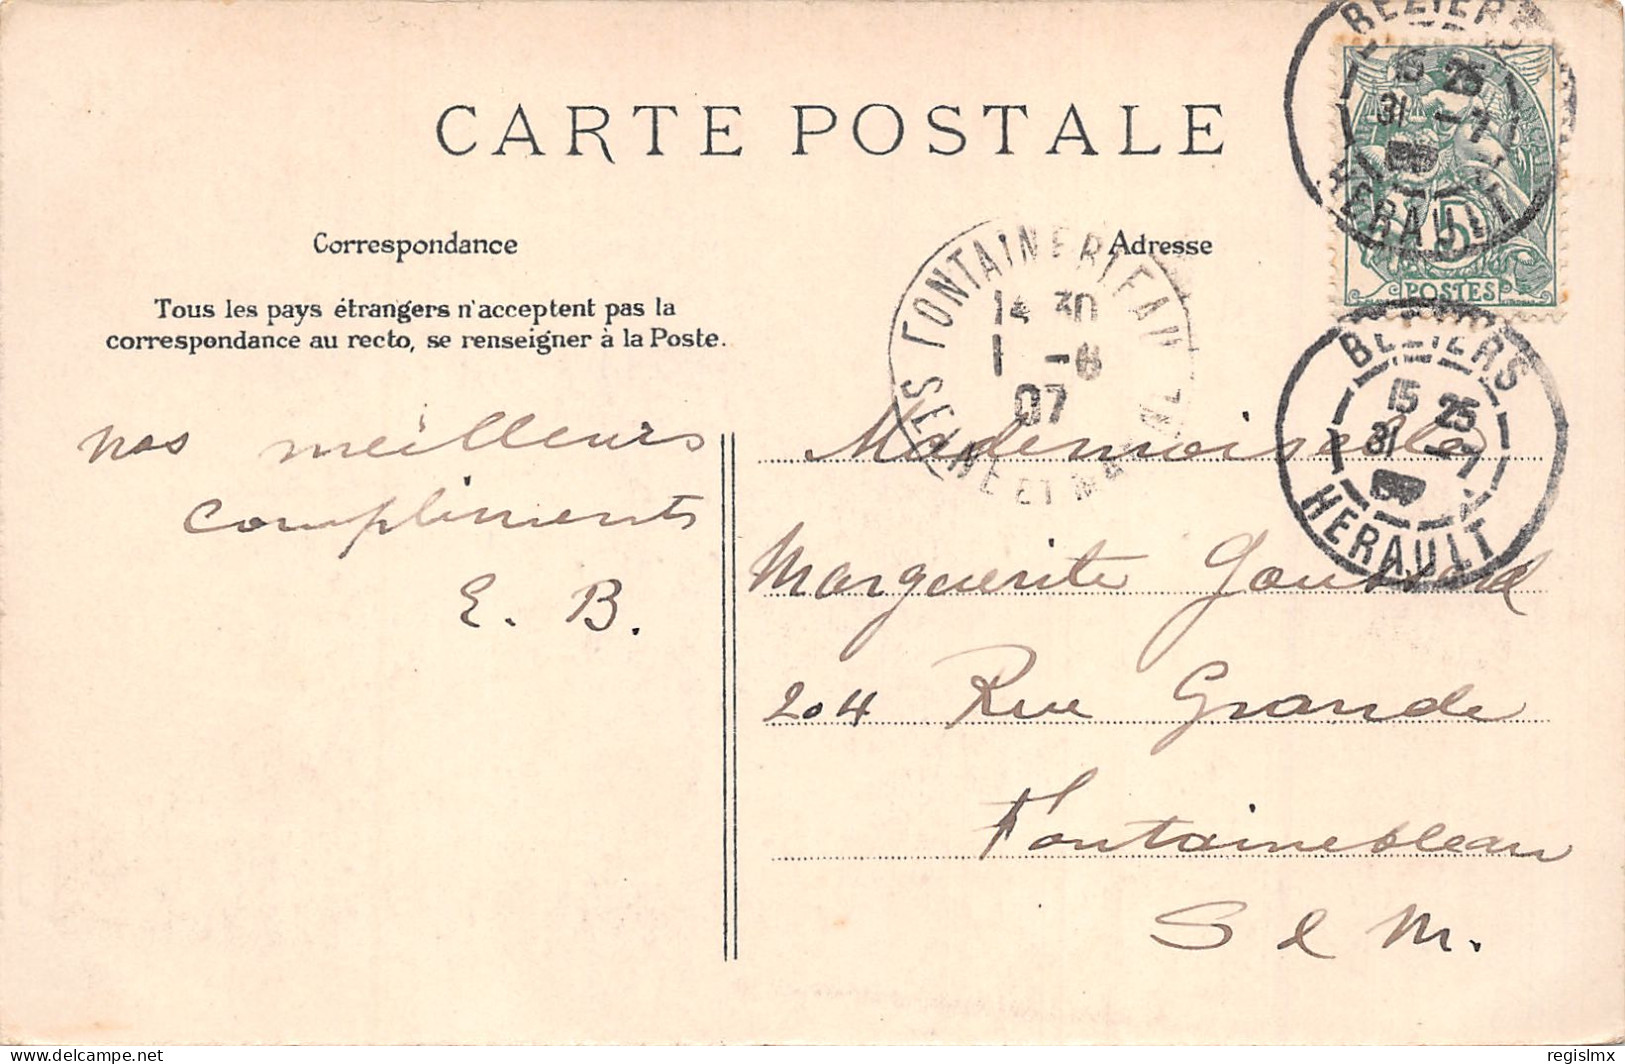 CARTE POSTALE
Correspondance
Tous les pays étrangers n'acceptent pas la
correspondance au recto, se renseigner à la Poste.
nos meilleurs
compliments
E. B.
Adresse
Mademoiselle
Marguerite
204 Rue Grande
Fontainebleau
S & M.
BEZIERS
15 25
31 -7
HERAULT
5
POSTES
BEZIERS
15 25
31 -7
HERAULT
FONTAINEBLEAU
14 30
1 -8
07
SEINE ET MARNE
delcampe.net
regislmx